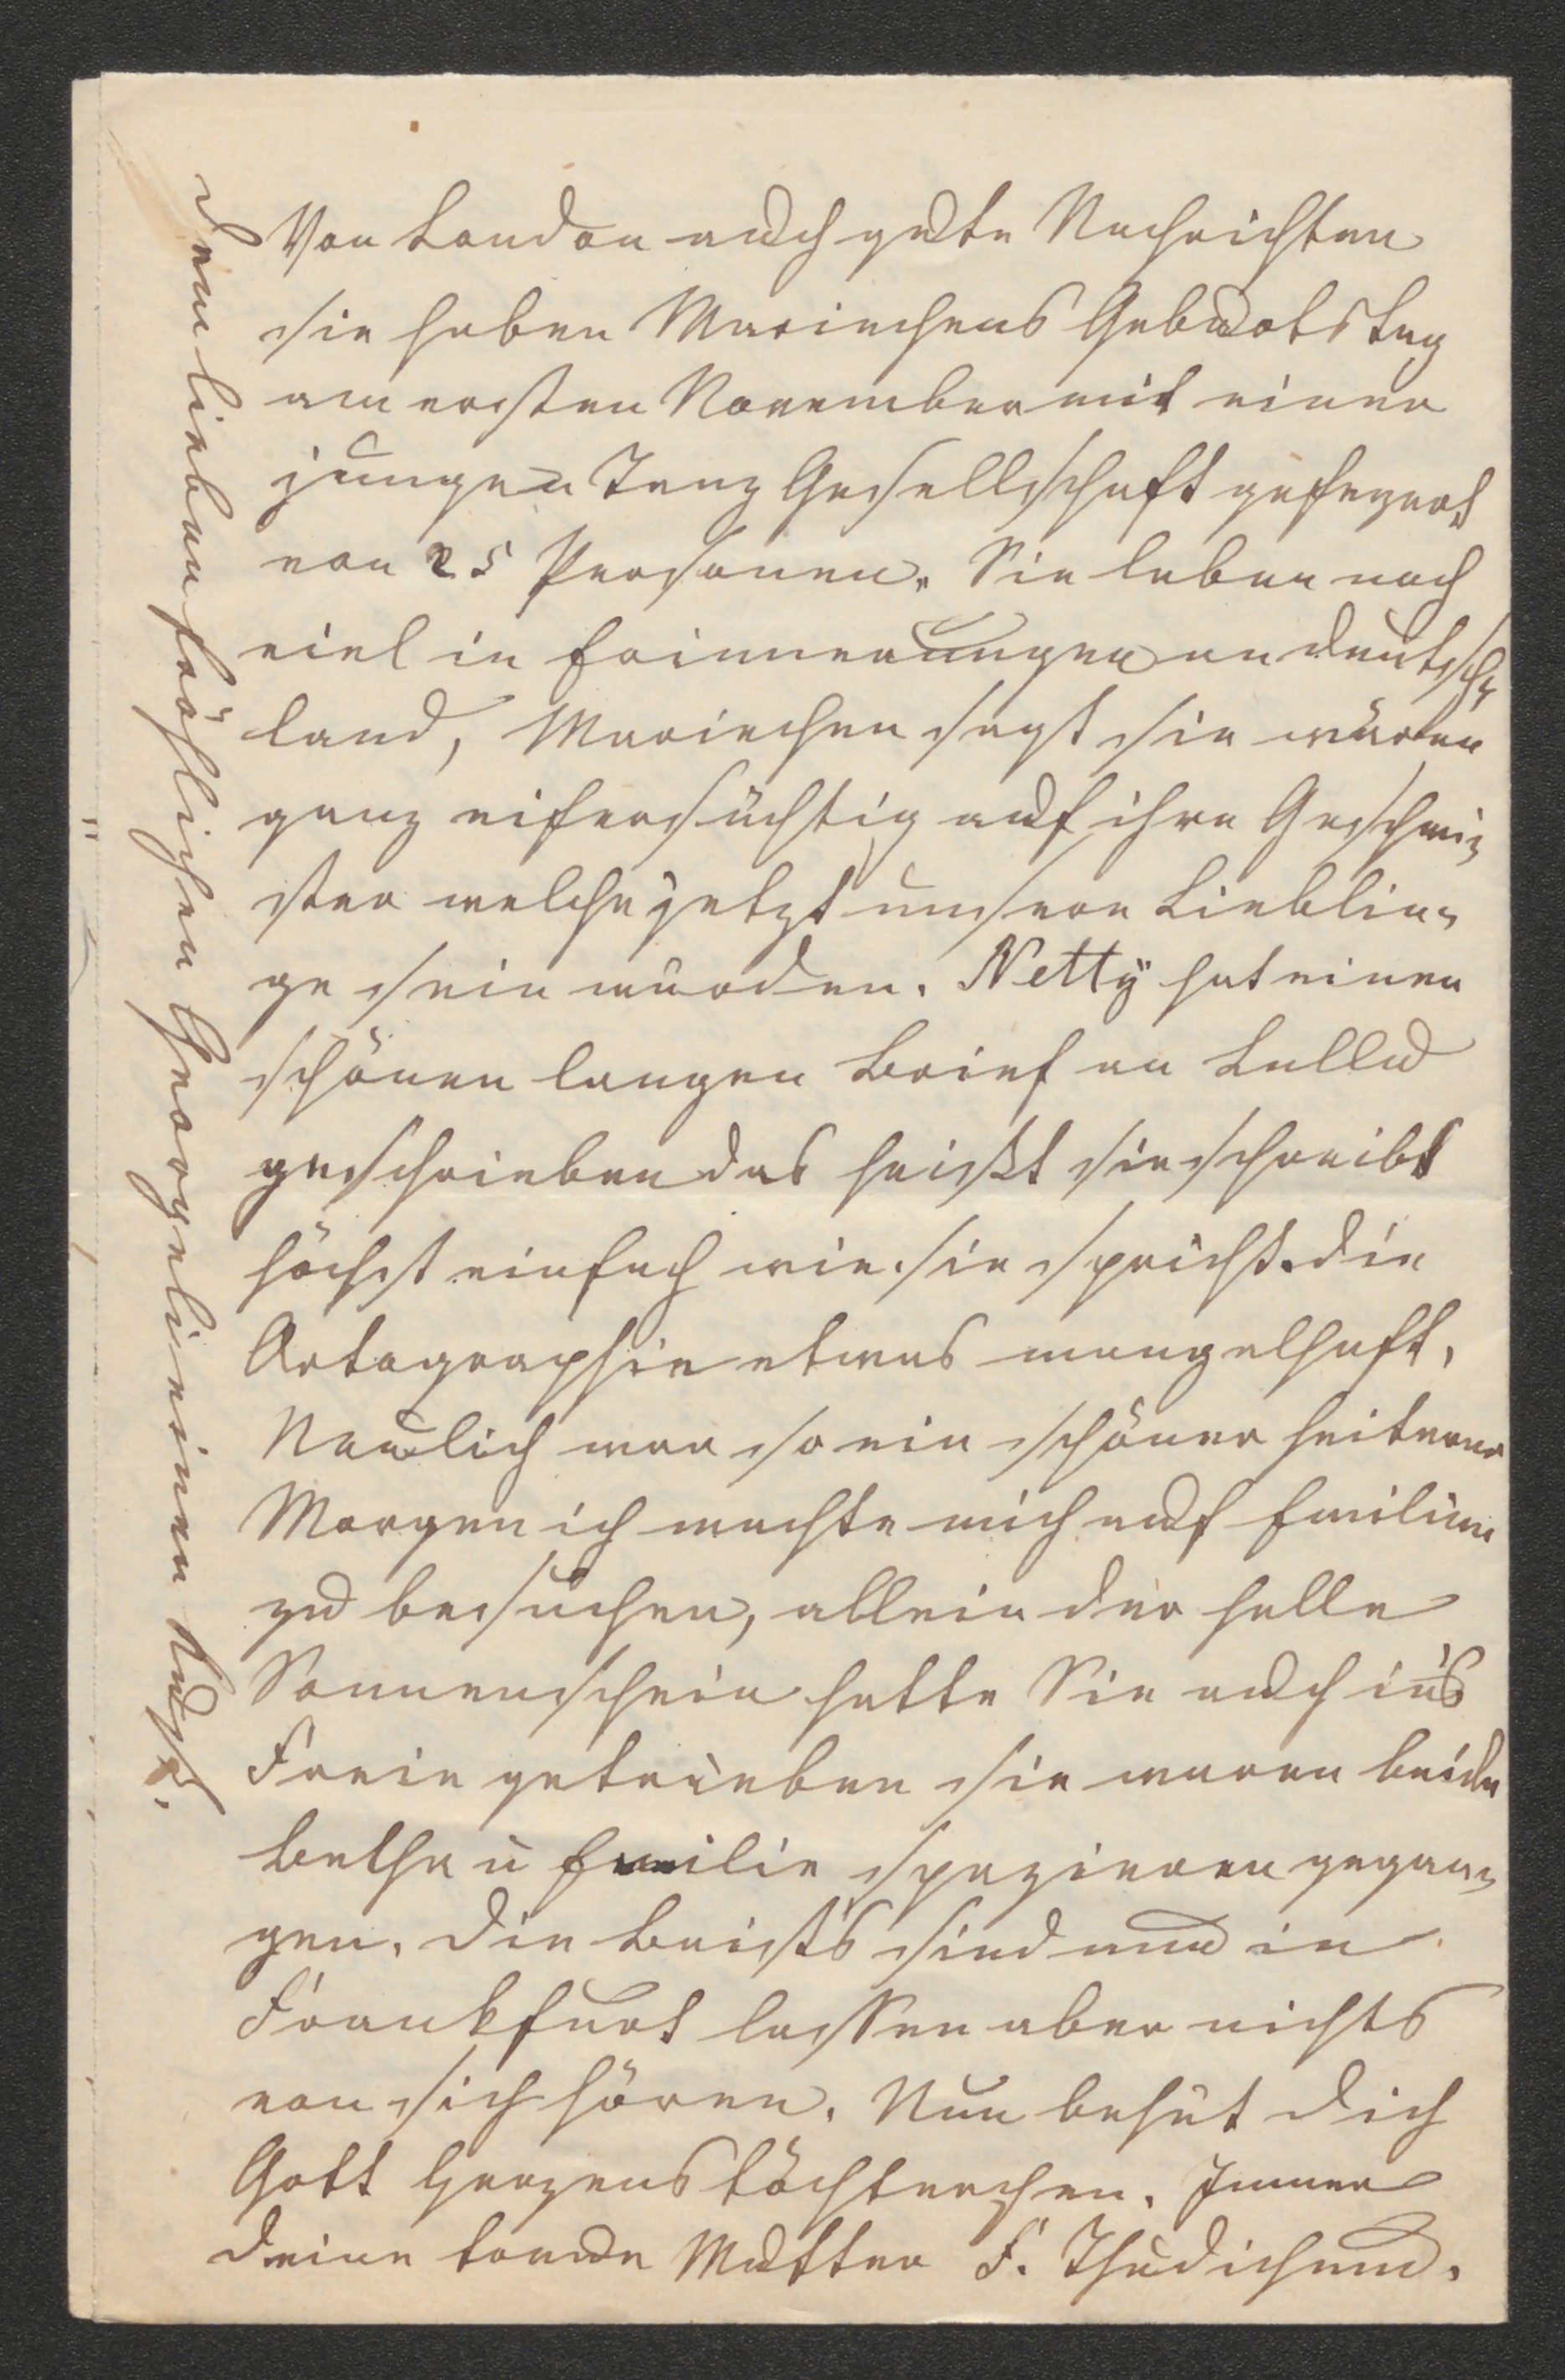 Von London auch gute Nachrichten
sie haben Mariechens Geburtstag
am ersten November mit einer
jungen Tanz Gesellschaft gefeyert
von 25 Personen. Sie leben noch
viel in Erinnerungen an Deutsch-
land, Mariechen sagt sie würden
ganz eifersüchtig auf ihre Geschwi-
ster welche jetzt unsere Lieblin-
ge sein wurden. Netty hat einen
schönen langen Brief an Lulla
geschrieben das heißt sie schreibt
höchst einfach wie sie spricht. die
Ortographie etwas mangelhaft.
Neulich war so ein schöner heiterer
Morgen ich machte mich auf Emilien
zu besuchen, allein der helle
Sonnenschein hatte Sie auch in's
Freie getrieben sie waren beide
Bethe u Emilie spazieren gegan-
gen. Die sind nun in
Frankfurt lassen aber nichts
von sich hören. Nun behüt Dich
Gott Herzenstöchterchen. Immer
Deine treue Mutter F. Thudichum.
Dem lieben fröhlichen Georgeli einen Kuß.